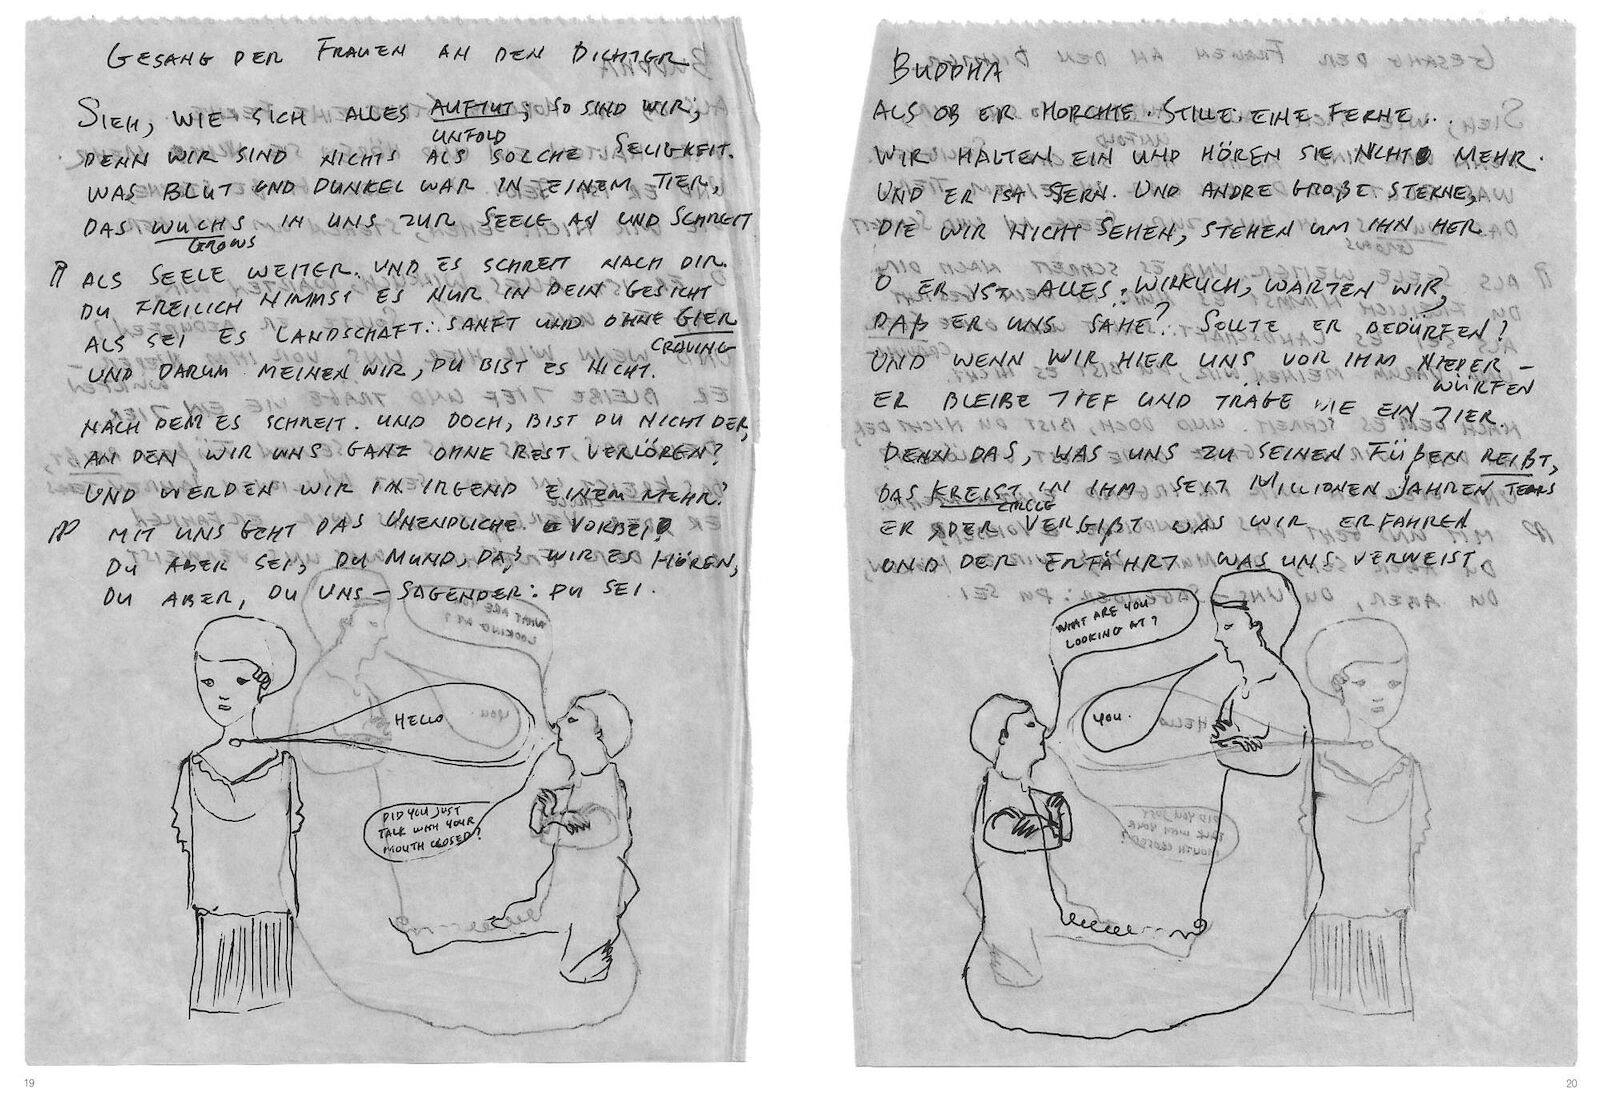 GESANG DER FRAUEN AN DEN DICHTER
SIEH, WIE SICH ALLES AUFTUT; SO SIND WIR;
UNFOLD
DENN WIR SIND NICHTS ALS SOLCHE SELIGKEIT.
WAS BLUT UND DUNKEL WAR IN EINEM TIER,
DAS WUCHS IN UNS ZUR SEELE AN UND SCHREIT
GROWS
ALS SEELE WEITER. UND ES SCHREIT NACH DIR.
DU FREILICH NIMMST ES NUR IN DEIN GESICHT
ALS SEI ES LANDSCHAFT: SANFT UND OHNE GIER
CRAVING
UND DARUM MEINEN WIR, DU BIST ES NICHT.
NACH DEM ES SCHREIT. UND DOCH, BIST DU NICHT DER,
AN DEN WIR UNS GANZ OHNE REST VERLÖREN?
UND WERDEN WIR IN IRGEND EINEM MEHR?
MIT UNS GEHT DAS UNENDLICHE VORBEI.
DU ABER SEI, DU MUND, DAß WIR ES HÖREN,
DU ABER, DU UNS-SAGENDER: DU SEI.
HELLO
DID YOU JUST
TALK WITH YOUR
MOUTH CLOSED?
19
BUDDHA
ALS OB ER HORCHTE. STILLE: EINE FERNE...
WIR HALTEN EIN UND HÖREN SIE NICHT MEHR.
UND ER IST STERN. UND ANDRE GROßE STERNE,
DIE WIR NICHT SEHEN, STEHEN UM IHN HER
O ER IST ALLES. WIRKLICH, WARTEN WIR,
DAß ER UNS SÄHE? SOLLTE ER BEDÜRFEN?
UND WENN WIR HIER UNS VOR IHM NIEDER-
WÜRFEN
ER BLEIBE TIEF UND TRÄGE WIE EIN TIER.
DENN DAS, WAS UNS ZU SEINEN FÜßEN REIßT,
DAS KREIST IN IHM SEIT MILLIONEN JAHREN TEARS
CIRCLE
ER DER VERGIßT WAS WIR ERFAHREN
UND DER ERFÄHRT WAS UNS VERWEIST.
WHAT ARE YOU
LOOKING AT?
YOU.
20